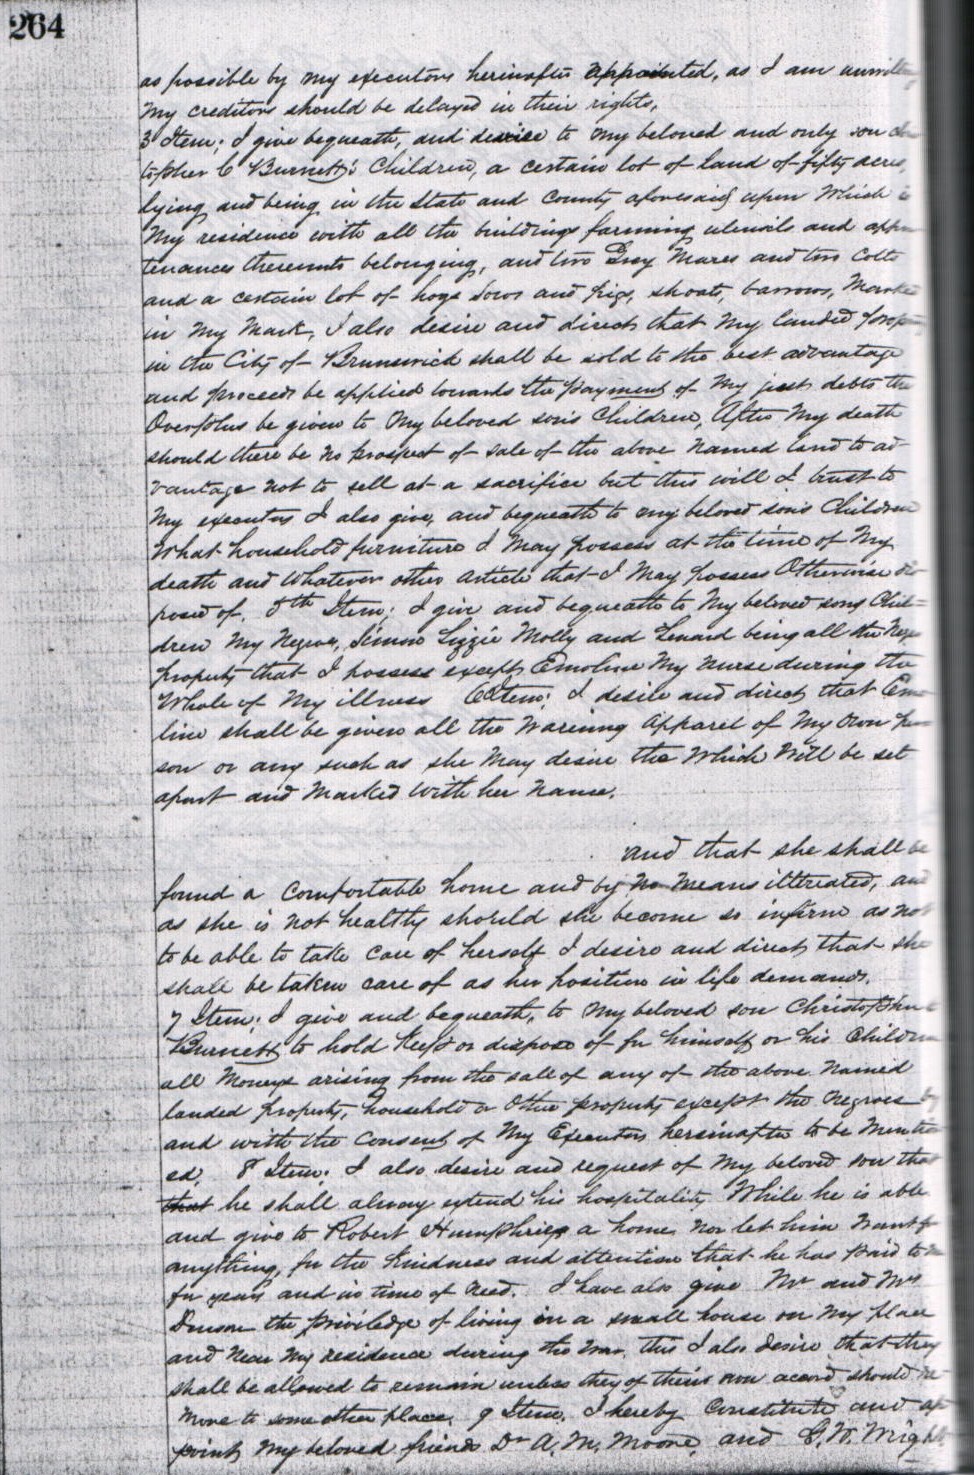 264
as possible by my executors herinafter appointed, as I am unwilling
my creditors should be delayed in their rights,
3 Item; I give bequeath, and devise to my beloved and only son Chris
topher C Burnett's Children, a certain lot of land of fifty acres,
lying and being in the State and County aforesaid upon Which is
My residence with all the buildings farming utensils and appu
tenances thereunto belonging, and two Grey Mares and two Colts
and a certain lot of hogs Sows and pigs, shoats, barrows, Marked
in My Mark, I also desire and direct that My landed property
in the City of Brunswick shall be sold to the best advantage
and proceeds be applied towards the payment of My just debts the
Overplus be given to My beloved son's Children, After My death
should there be no prospect of sale of the above Named land to ad
vantage not to sell at a sacrifice but this will I trust to
My executors I also give, and bequeath to my beloved son's Children
What household furniture I May possess at the time of My
death and Whatever other article that I May possess Otherwise dis
posed of. 5th Item; I give and bequeath to My beloved sons Chil=
dren My Negroes, Simon Lizzie Molly and Lenard being all the Negro
property that I possess except Emoline My Nurse during the
Whole of My illness 6 Item; I desire and direct that Em
line shall be given all the Warening Apparel of My Own per
son or any such as she May desire the Which Will be set
apart and Marked With her Name.
and that she shall be
found a Comfortable home and by no means illtreated, and
as she is not healthy should she become so infirm as not
to be able to take Care of herself I desire and direct that she
shall be taken care of as her position in life demands.
7 Item; I give and bequeath, to My beloved son Christopher C
Burnett to hold Keep or dispose of for himself or his Children
all Moneys arising from the sale of any of the above Named
landed property, household or Other property except the Negroes by
and with the Consent of My Executors hereinafter to be Mention
ed, 8 Item; I also desire and request of My beloved son that
that he shall alway extend his hospitality While he is able
and give to Robert Humphries a home nor let him Want for
anything, for the Kindness and attention that he has paid to me
for years and in time of need. I have also give Mr and Mrs
the priviledge of living in a small house on My place
and Near My residence during the War, this I also desire that they
shall be allowed to remain unless they of their own accord should re
move to some other place. 9 Item, I hereby Constitute and ap
point My beloved friends Dr A. M. Moore, and G. W. Wright,